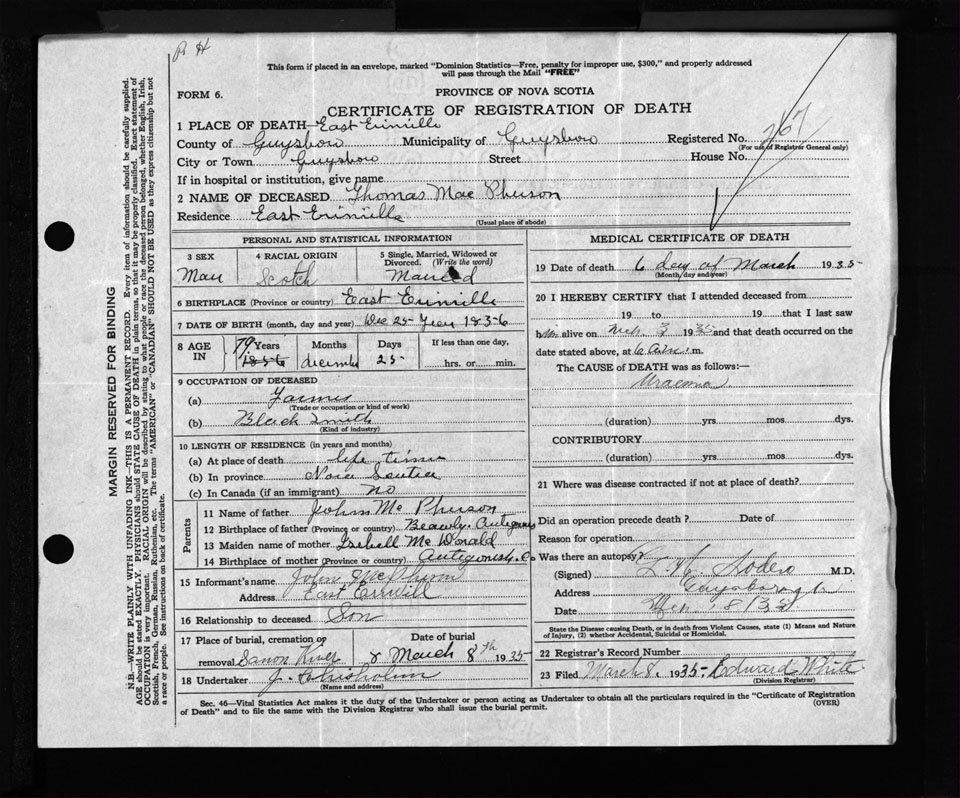 R H
This form if placed in an envelope, marked "Dominion Statistics—Free, penalty for improper use, $300," and properly addressed
will pass through the Mail "FREE"
FORM 6.
PROVINCE OF NOVA SCOTIA
CERTIFICATE OF REGISTRATION OF DEATH
1 PLACE OF DEATH East Erinville
County of Guysboro Municipality of Guysboro Registered No. 267
(For use of Registrar General only)
City or Town Guysboro Street House No.
If in hospital or institution, give name
2 NAME OF DECEASED Thomas Mac Pherson
Residence East Erinville
(Usual place of abode)
PERSONAL AND STATISTICAL INFORMATION
3 SEX 4 RACIAL ORIGIN 5 Single, Married, Widowed or Divorced. (Write the word)
Man Scotch Married
6 BIRTHPLACE (Province or country) East Erinville
7 DATE OF BIRTH (month, day and year) Dec 25 Year 1856
8 AGE IN Years Months Days If less than one day,
79 1856 december 25 hrs. or min.
9 OCCUPATION OF DECEASED
(a) Farmer
(Trade or occupation or kind of work)
(b) Black Smith
(Kind of industry)
10 LENGTH OF RESIDENCE (in years and months)
(a) At place of death life time
(b) In province Nova Scotia
(c) In Canada (if an immigrant) no
Parents
11 Name of father John Mc Pherson
12 Birthplace of father (Province or country) Beauly. Antigonish
13 Maiden name of mother Isebell Mc Donald
14 Birthplace of mother (Province or country) Antigonish. Co
15 Informant's name John McPherson
Address East Erinvill
16 Relationship to deceased Son
17 Place of burial, cremation or removal Date of burial
Salmon River 8 March 8th 1935
18 Undertaker J. Chisholm
(Name and address)
MEDICAL CERTIFICATE OF DEATH
19 Date of death 6 day of March 1935
(Month day and year)
20 I HEREBY CERTIFY that I attended deceased from
19 to 19 that I last saw
him alive on Mch 3 1935 and that death occurred on the
date stated above, at 6 a.m. m.
The CAUSE of DEATH was as follows:—
Uraemia
(duration) yrs mos dys.
CONTRIBUTORY
(duration) yrs mos dys.
21 Where was disease contracted if not at place of death?
Did an operation precede death ? Date of
Reason for operation
Was there an autopsy?
(Signed) Sodero M.D.
Address Guysborough
Date Mch 8/35
State the Disease causing Death, or in death from Violent Causes, state (1) Means and Nature
of Injury, (2) whether Accidental, Suicidal or Homicidal.
22 Registrar's Record Number
23 Filed March 8. 1935 Edward White
(Division Registrar)
Sec. 46—Vital Statistics Act makes it the duty of the Undertaker or person acting as Undertaker to obtain all the particulars required in the "Certificate of Registration
of Death" and to file the same with the Division Registrar who shall issue the burial permit.
(OVER)
MARGIN RESERVED FOR BINDING
N.B.—WRITE PLAINLY WITH UNFADING INK—THIS IS A PERMANENT RECORD. Every item of information should be carefully supplied.
AGE should be stated EXACTLY. PHYSICIANS should STATE CAUSE OF DEATH in plain terms, so that it may be properly classified. Exact statement of
OCCUPATION is very important. RACIAL ORIGIN will be described by stating to what people or race the deceased person belonged, whether English, Irish,
Scottish, French, German, Russian, Ruthenian, etc. The terms "AMERICAN" or "CANADIAN" SHOULD NOT BE USED as they express citizenship but not
a race or people. See instructions on back of certificate.